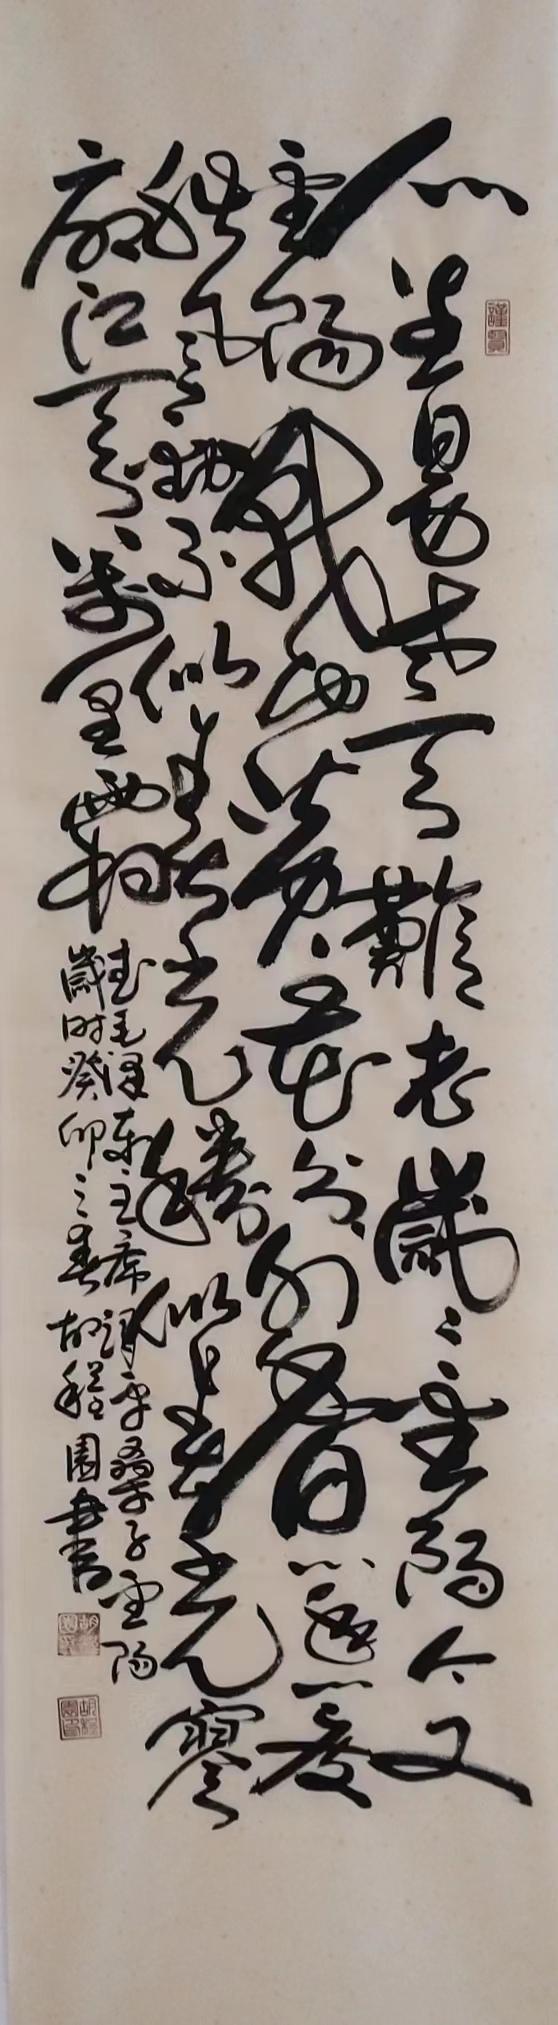 人生易老天難老歲々重陽今又
重陽戰地黃花分外香一年一度
秋風勁不似春光勝似春光寥
廓江天萬里霜
書毛澤東主席詞采桑子重陽
歲時癸卯之春胡程園書